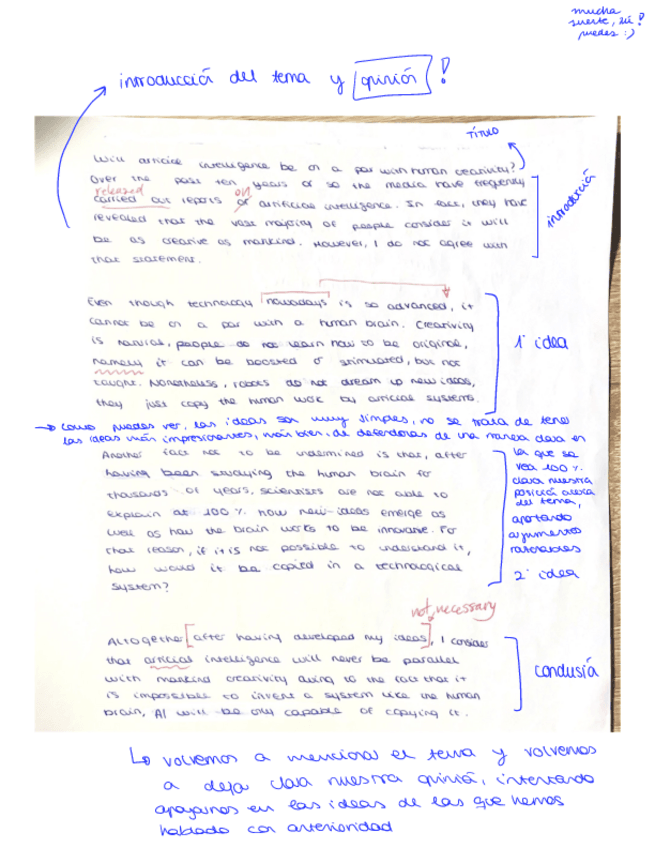 mucha
suerte, tú!
puedes :)
introducción del tema y opinión!
TÍTULO
Will articial intelligence be on a par with human creativity?
Over the past ten years or so the media have frequently
released on
carried out reports of artificial intelligence. In fact, they have
revealed that the vast majority of people consider it will
be as creative as mankind. However, I do not agree with
that statement.
introducción
Even though technology nowadays is so advanced, it
cannot be on a par with a human brain. Creativity
is natural, people do not learn how to be original,
namely it can be boosted or stimulated, but not
taught. Nonetheless, robots do not dream up new ideas,
they just copy the human work by articial systems.
1ª idea
→ como puedes ver, las ideas son muy simples, no se trata de tener
las ideas más impresionantes, más bien, de defenderlas de una manera clara en
la que se
vea 100%
clara nuestra
posición acerca
del tema,
aportando
argumentos
razonables
Another fact not to be undermined is that, after
having been studying the human brain for
thousands of years, scientists are not able to
explain at 100% how new ideas emerge as
well as how the brain works to be innovative. For
that reason, if it is not possible to understand it,
how would it be copied in a technological
system?
2ª idea
not necessary
Altogether [after having developed my ideas], I consider
that articial intelligence will never be parallel
with mankind creativity owing to the fact that it
is impossible to invent a system like the human
brain, AI will be only capable of copying it.
conclusión
↳ volvemos a mencionar el tema y volvemos
a dejar clara nuestra opinión, intentando
apoyarnos en las ideas de las que hemos
hablado con anterioridad